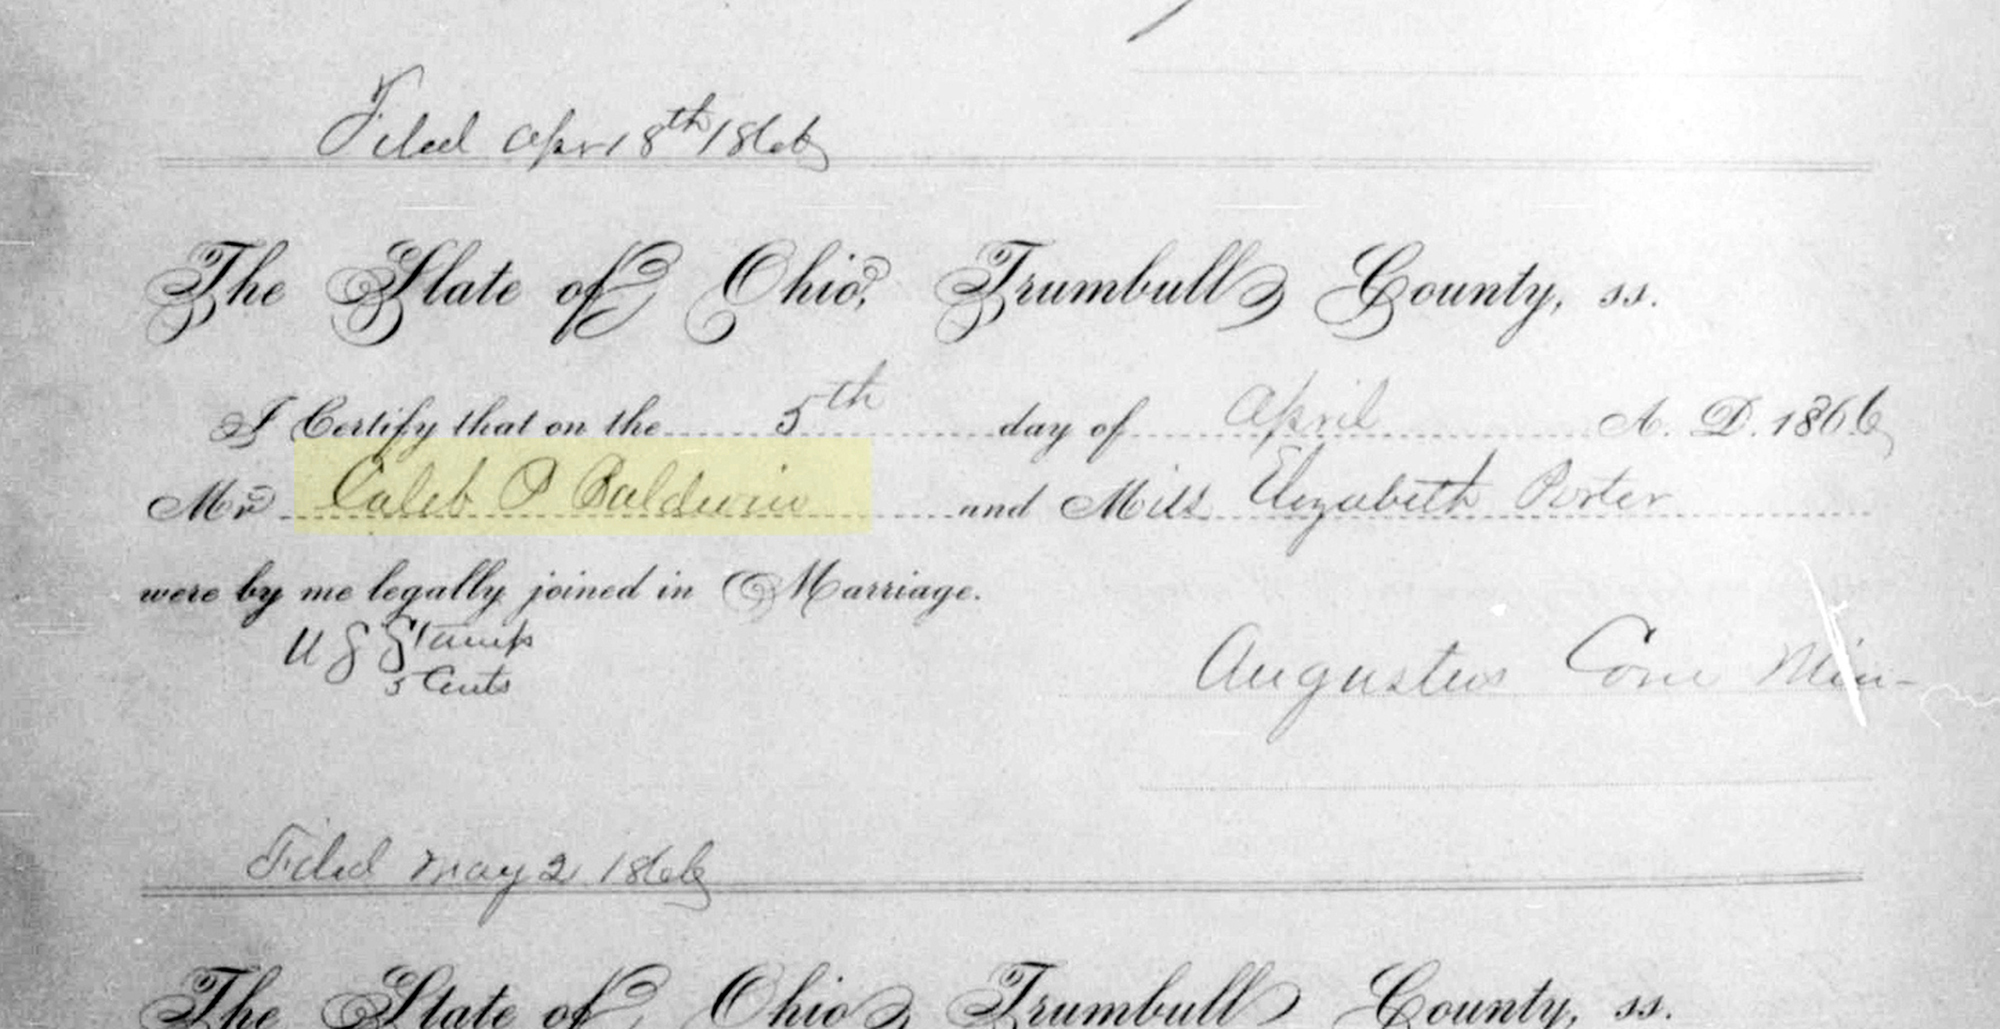 Filed Apr 18th 1866
The State of Ohio, Trumbull County, ss.
I Certify that on the 5th day of April A. D. 1866
Mr Caleb P Baldwin and Miss Elizabeth Porter
were by me legally joined in Marriage.
U S Stamp
5 Cents
Augustus Cone Min-
Filed May 2 1866
The State of Ohio Trumbull County, ss.